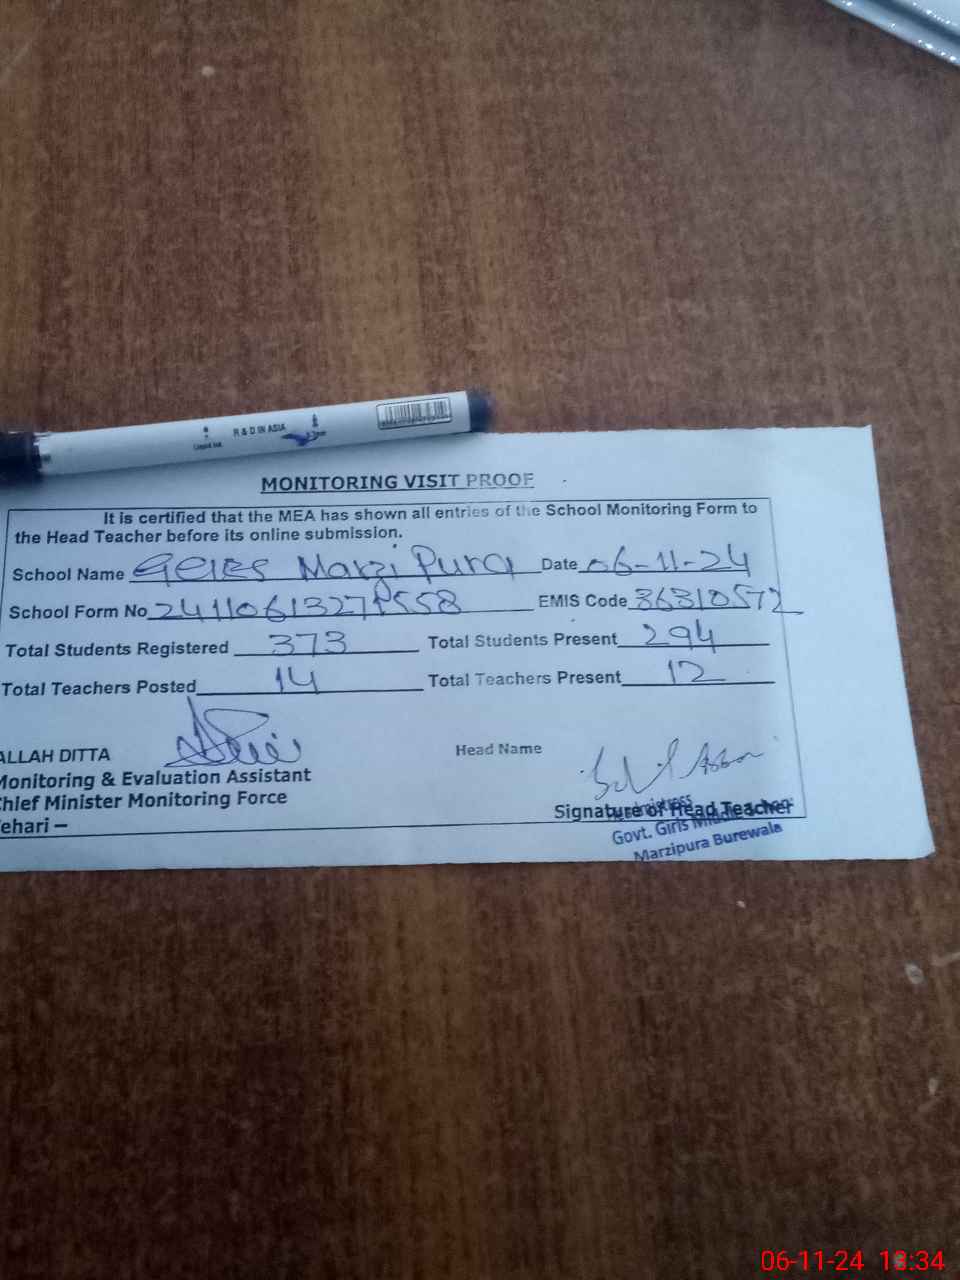 R & D IN ASIA
Liquid Ink
MONITORING VISIT PROOF
It is certified that the MEA has shown all entries of the School Monitoring Form to
the Head Teacher before its online submission.
School Name Marzi Pura Date 06-11-24
School Form No EMIS Code 36310572
Total Students Registered 373 Total Students Present 294
Total Teachers Posted 14 Total Teachers Present 12
ALLAH DITTA Head Name
Monitoring & Evaluation Assistant
Chief Minister Monitoring Force
ehari –
Signature of Head Teacher
Headmistress
Govt. Girls Middle School
Marzipura Burewala
06-11-24 18:34